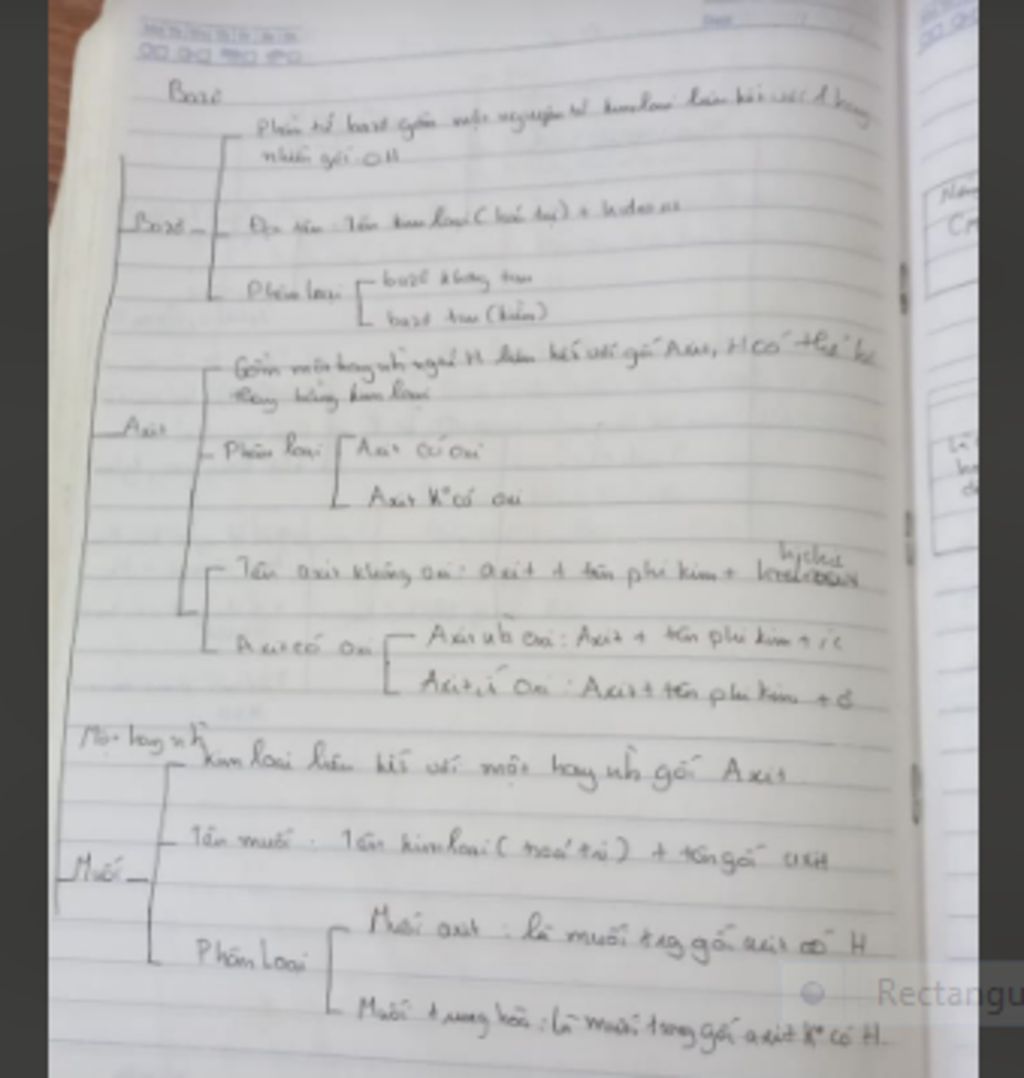 Bazơ
Phân tử bazơ gồm một nguyên tử kim loại liên kết với 1 hay
nhiều gốc OH
Bazơ
Đọc tên: Tên kim loại (hoá trị) + hidroxit
Phân loại
bazơ không tan
bazơ tan (kiềm)
Gồm một hay nh ngtử H liên kết với gốc Axit, H có thể bị
thay bằng kim loại
Axit
Phân loại
Axit có oxi
Axit Ko có oxi
Tên axit không oxi: axit + tên phi kim + hidric
Axit có oxi
Axit nh oxi: Axit + tên phi kim + ic
Axit ít oxi: Axit + tên phi kim + ơ
Một hay nh
kim loại liên kết với một hay nh gốc Axit
Tên muối: Tên kim loại (hoá trị) + tên gốc axit
Muối
Phân Loại
Muối axit: là muối trg gốc axit có H
Muối trung hoà: là muối trong gốc axit Ko có H.
Rectangu